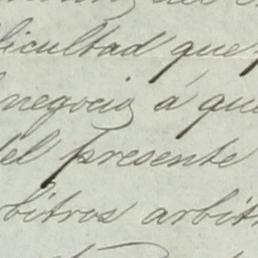 licultad que
negocio á que
del presente
bitros arbit